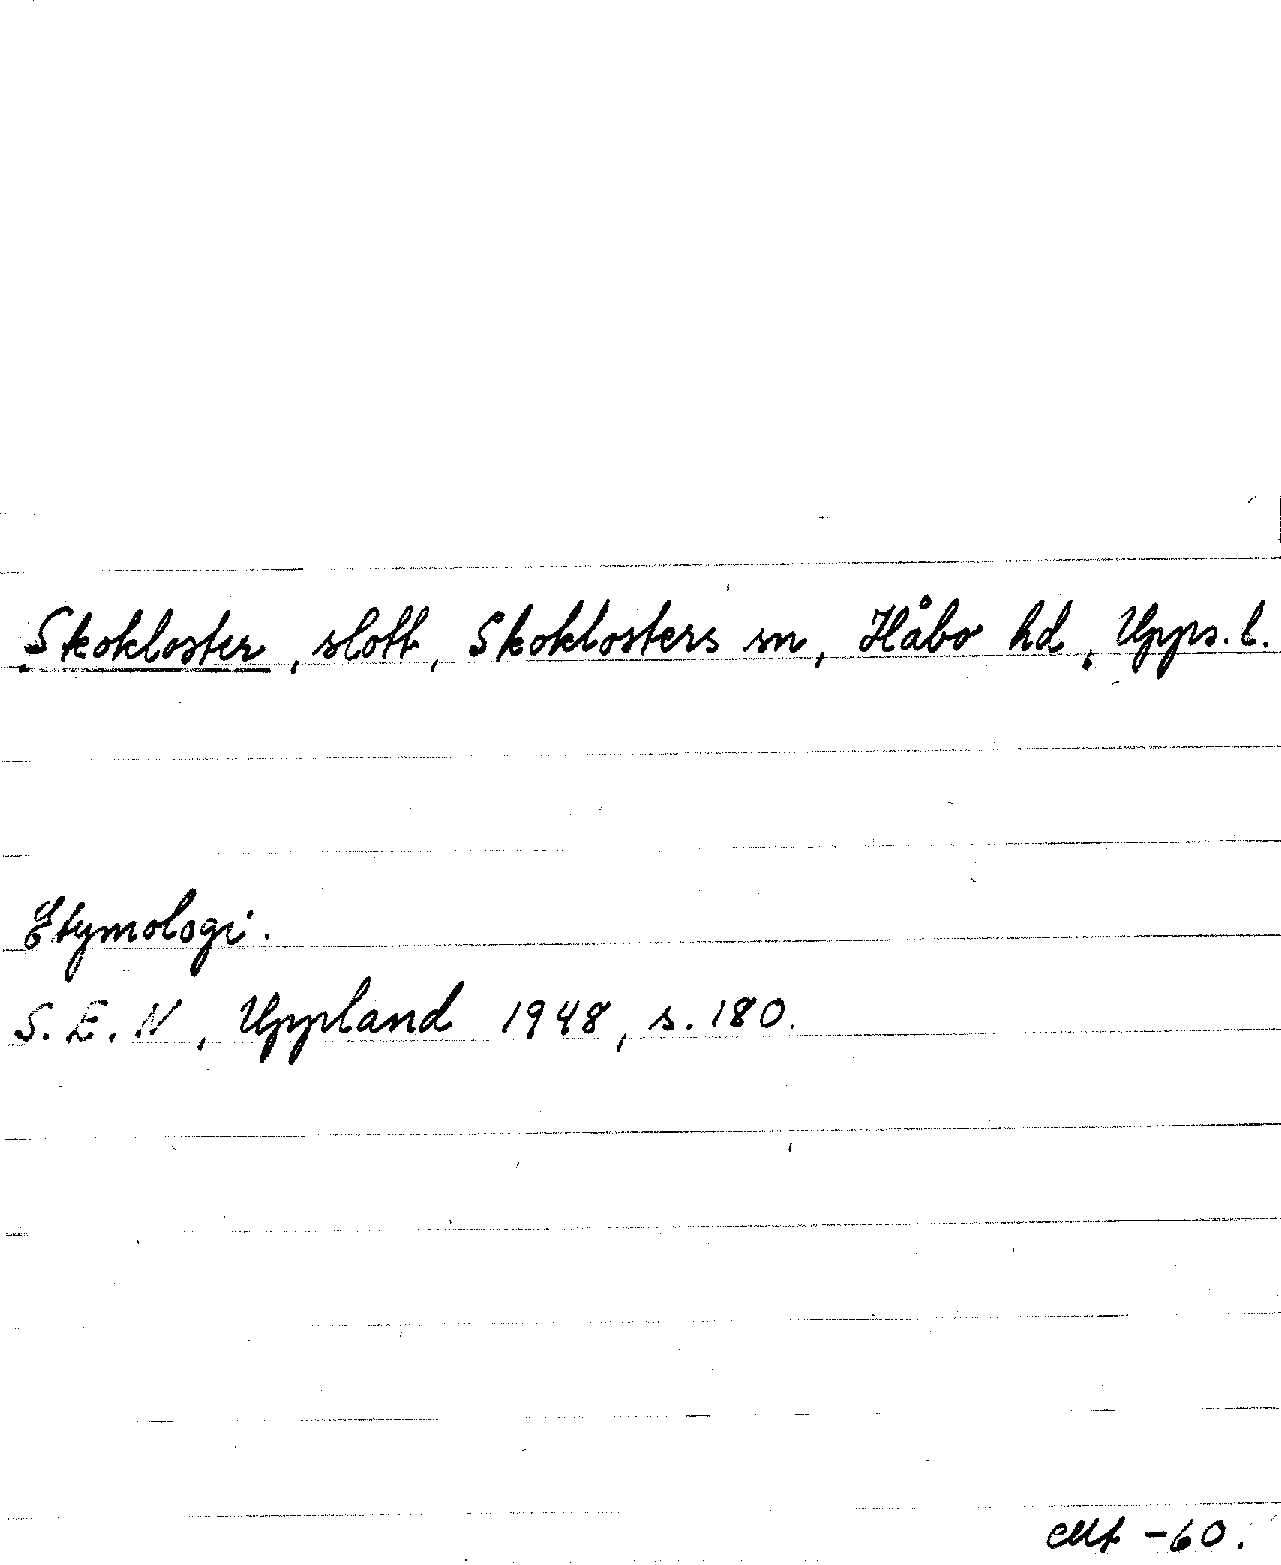 Skokloster, slott, Skoklosters sn, Håbo hd, Upps. l.
Etymologi.
S. E. N, Uppland 1948, s. 180.
-60.